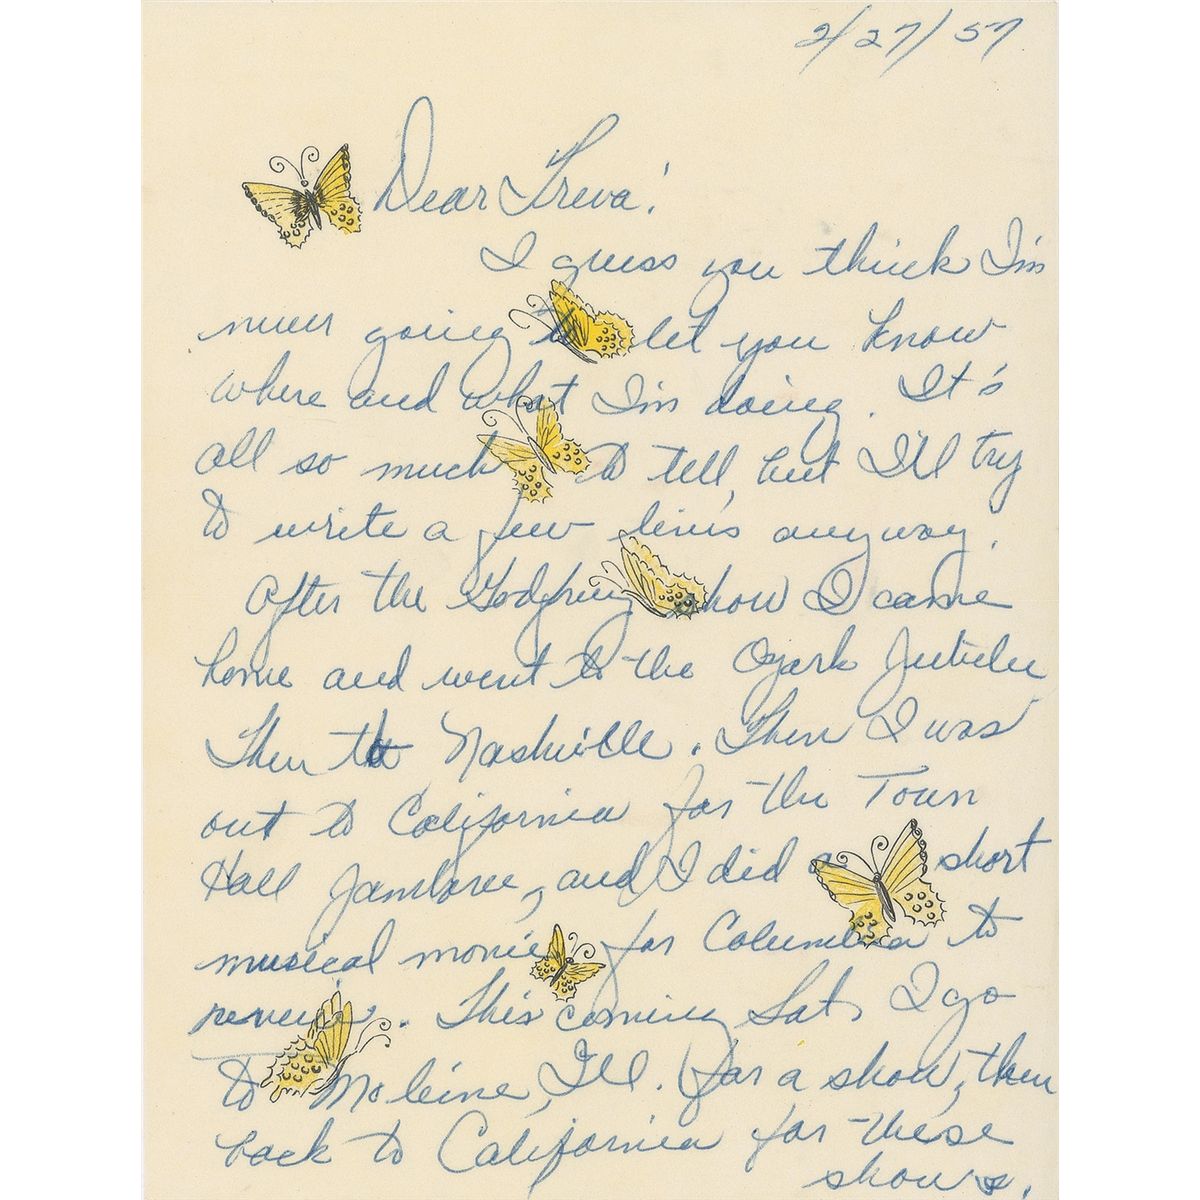 2/27/57
Dear Treva!
I guess you think I'm
never going to let you know
where and what I'm doing. It's
all so much to tell, but I'll try
to write a few lines anyway.
After the Godfrey show I came
home and went to the Ozark Jubilee
Then to Nashville. Then I was
out to California for the Town
Hall Jamboree, and I did a short
musical movie for Columbia to
. This coming Sat, I go
to Moleine, Ill. for a show, then
back to California for these
shows.